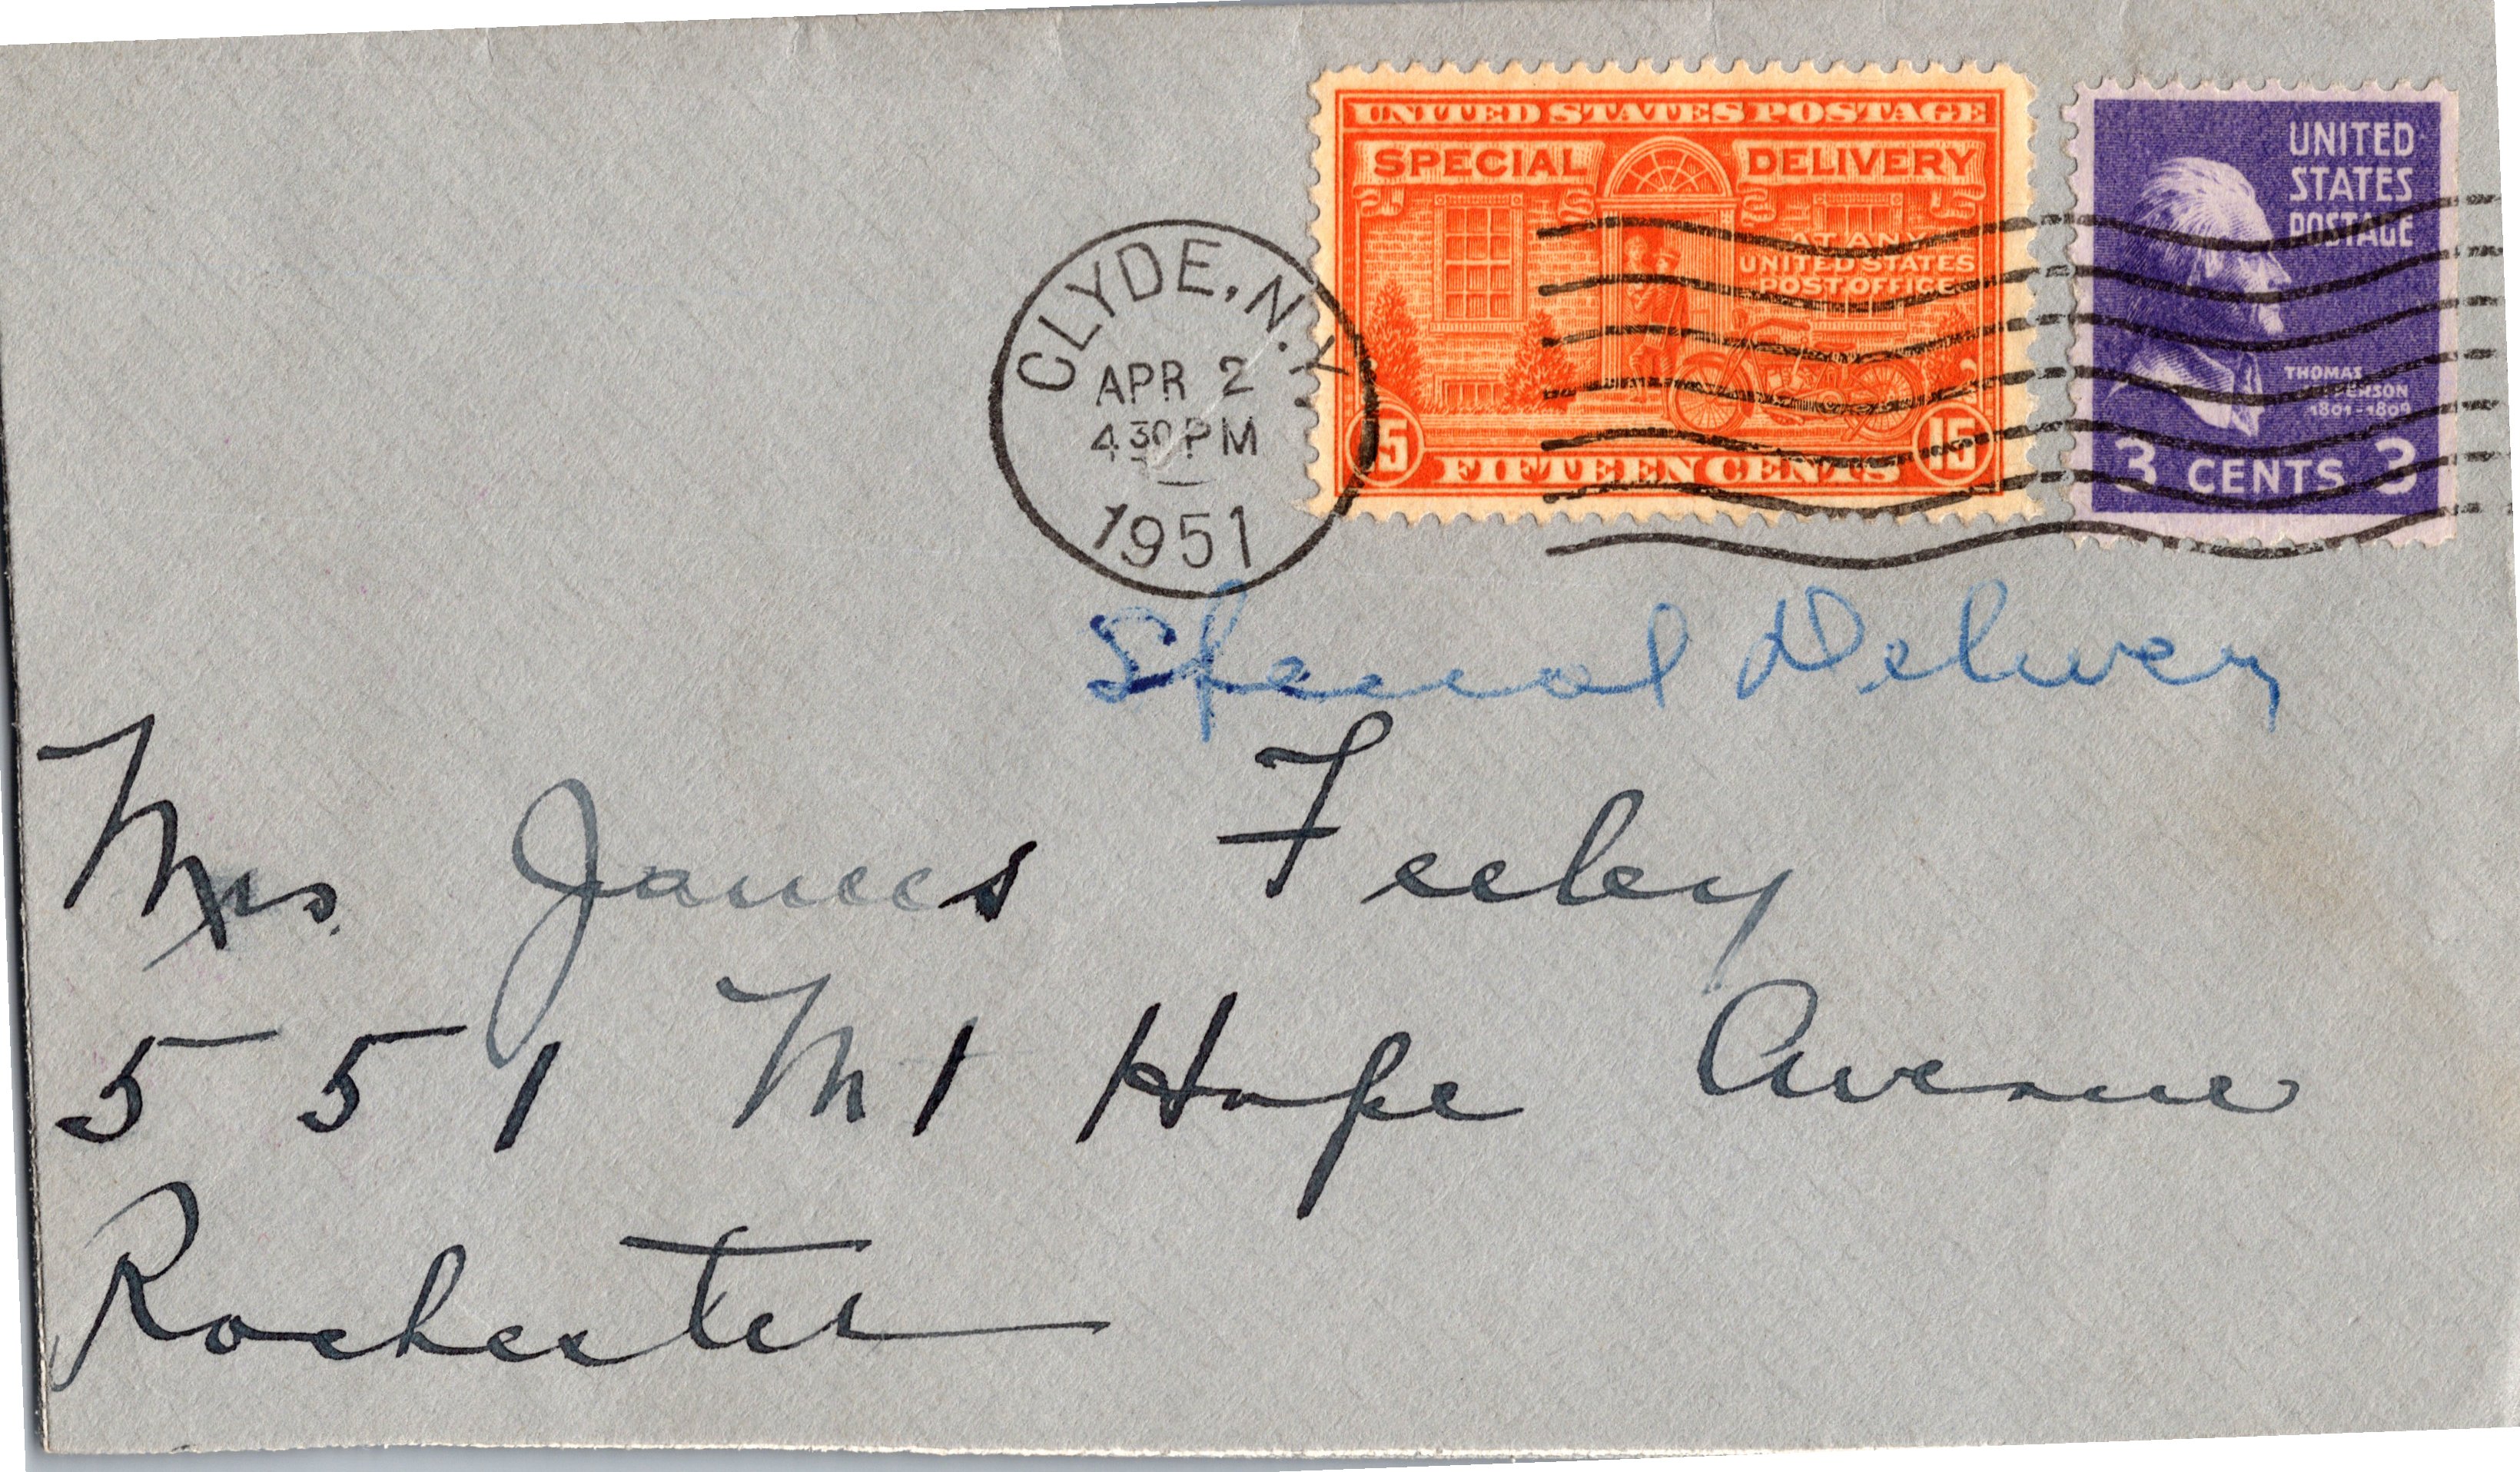 UNITED STATES POSTAGE
SPECIAL DELIVERY
AT ANY
UNITED STATES
POST OFFICE
15 FIFTEEN CENTS 15
UNITED
STATES
POSTAGE
THOMAS
JEFFERSON
1801-1809
3 CENTS 3
CLYDE, N.Y.
APR 2
4 30 PM
1951
Special Delivery
Mrs James Feeley
551 Mt Hope Avenue
Rochester